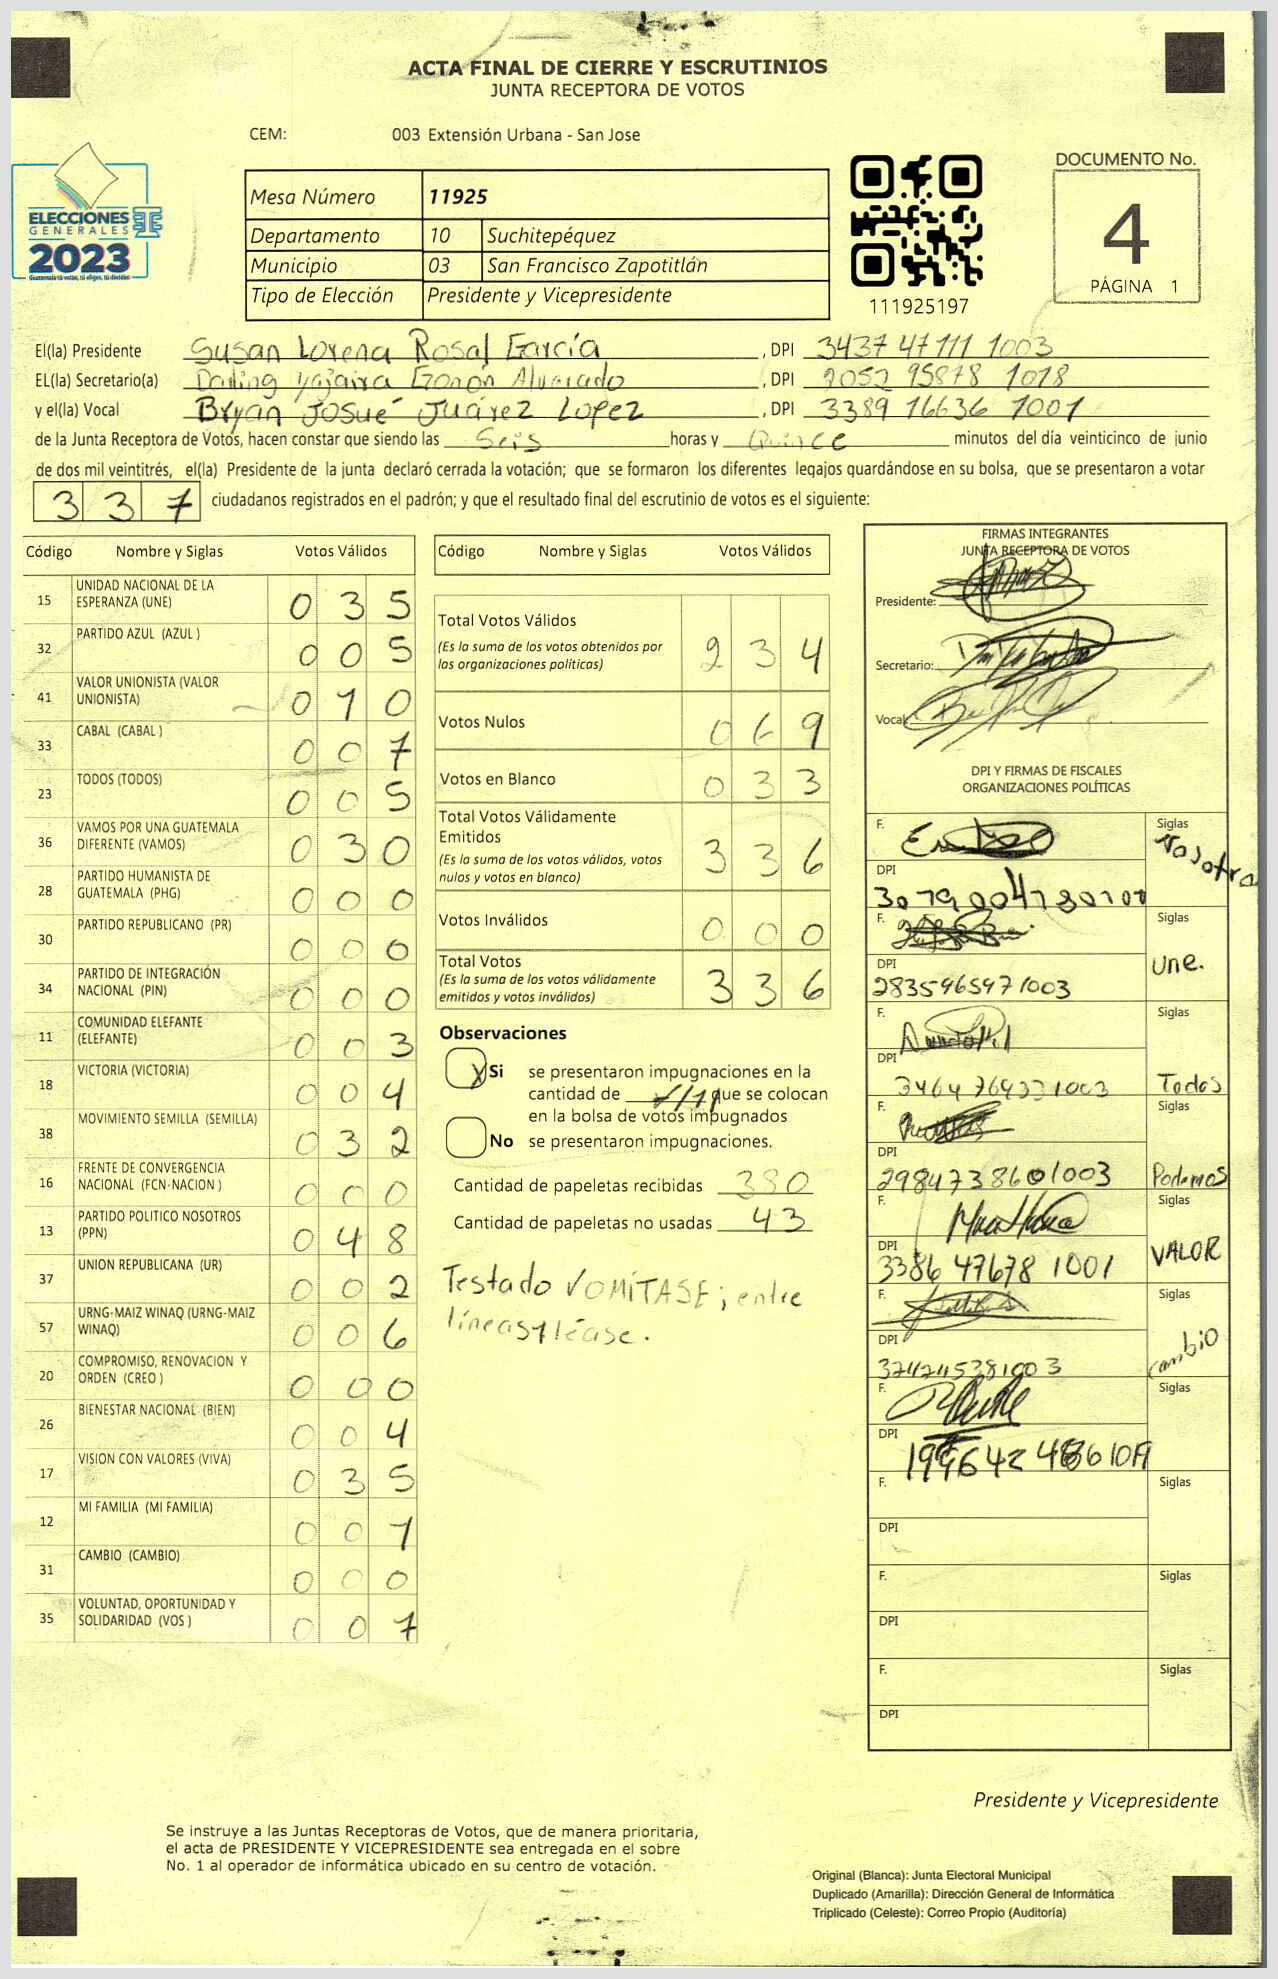 ACTA FINAL DE CIERRE Y ESCRUTINIOS
JUNTA RECEPTORA DE VOTOS
CEM: 003 Extensión Urbana - San Jose
DOCUMENTO No.
4
PÁGINA 1
ELECCIONES
GENERALES
2023
Guatemala tú votas, tú eliges, tú decides
Mesa Número 11925
Departamento 10 Suchitepéquez
Municipio 03 San Francisco Zapotitlán
Tipo de Elección Presidente y Vicepresidente
111925197
El(la) Presidente Susan Lorena Rosal García , DPI 3437 47111 1003
EL(la) Secretario(a) Yajaira Alvarado , DPI 2052 95878 1018
y el(la) Vocal Bryan Josué Juárez Lopez , DPI 3389 16636 1001
de la Junta Receptora de Votos, hacen constar que siendo las Seis horas y Quince minutos del día veinticinco de junio
de dos mil veintitrés, el(la) Presidente de la junta declaró cerrada la votación; que se formaron los diferentes legajos quardándose en su bolsa, que se presentaron a votar
337 ciudadanos registrados en el padrón; y que el resultado final del escrutinio de votos es el siguiente:
Código Nombre y Siglas Votos Válidos
15 UNIDAD NACIONAL DE LA ESPERANZA (UNE) 035
32 PARTIDO AZUL (AZUL ) 005
41 VALOR UNIONISTA (VALOR UNIONISTA) 010
33 CABAL (CABAL ) 007
23 TODOS (TODOS) 005
36 VAMOS POR UNA GUATEMALA DIFERENTE (VAMOS) 030
28 PARTIDO HUMANISTA DE GUATEMALA (PHG) 000
30 PARTIDO REPUBLICANO (PR) 000
34 PARTIDO DE INTEGRACIÓN NACIONAL (PIN) 000
11 COMUNIDAD ELEFANTE (ELEFANTE) 003
18 VICTORIA (VICTORIA) 004
38 MOVIMIENTO SEMILLA (SEMILLA) 032
16 FRENTE DE CONVERGENCIA NACIONAL (FCN-NACION ) 000
13 PARTIDO POLITICO NOSOTROS (PPN) 048
37 UNION REPUBLICANA (UR) 002
57 URNG-MAIZ WINAQ (URNG-MAIZ WINAQ) 006
20 COMPROMISO, RENOVACION Y ORDEN (CREO ) 000
26 BIENESTAR NACIONAL (BIEN) 004
17 VISION CON VALORES (VIVA) 035
12 MI FAMILIA (MI FAMILIA) 001
31 CAMBIO (CAMBIO) 000
35 VOLUNTAD, OPORTUNIDAD Y SOLIDARIDAD (VOS ) 007
Código Nombre y Siglas Votos Válidos
Total Votos Válidos 234
(Es la suma de los votos obtenidos por
las organizaciones políticas)
Votos Nulos 069
Votos en Blanco 033
Total Votos Válidamente
Emitidos 336
(Es la suma de los votos válidos, votos
nulos y votos en blanco)
Votos Inválidos 000
Total Votos 336
(Es la suma de los votos válidamente
emitidos y votos inválidos)
Observaciones
X Si se presentaron impugnaciones en la
cantidad de que se colocan
en la bolsa de votos impugnados
No se presentaron impugnaciones.
Cantidad de papeletas recibidas 380
Cantidad de papeletas no usadas 43
Testado VOMÍTASE; entre
líneas léase.
FIRMAS INTEGRANTES
JUNTA RECEPTORA DE VOTOS
Presidente:
Secretario:
Vocal:
DPI Y FIRMAS DE FISCALES
ORGANIZACIONES POLÍTICAS
F. Siglas Nosotros
DPI
F. Siglas Une.
DPI 2835965971003
F. Siglas Todos
DPI 3464764331003
F. Siglas Podemos
DPI 2984738601003
F. Siglas VALOR
DPI 3386 47678 1001
F. Siglas cambio
DPI
F. Siglas
DPI
F. Siglas
DPI
F. Siglas
DPI
F. Siglas
DPI
Presidente y Vicepresidente
Se instruye a las Juntas Receptoras de Votos, que de manera prioritaria,
el acta de PRESIDENTE Y VICEPRESIDENTE sea entregada en el sobre
No. 1 al operador de informática ubicado en su centro de votación.
Original (Blanca): Junta Electoral Municipal
Duplicado (Amarilla): Dirección General de Informática
Triplicado (Celeste): Correo Propio (Auditoría)